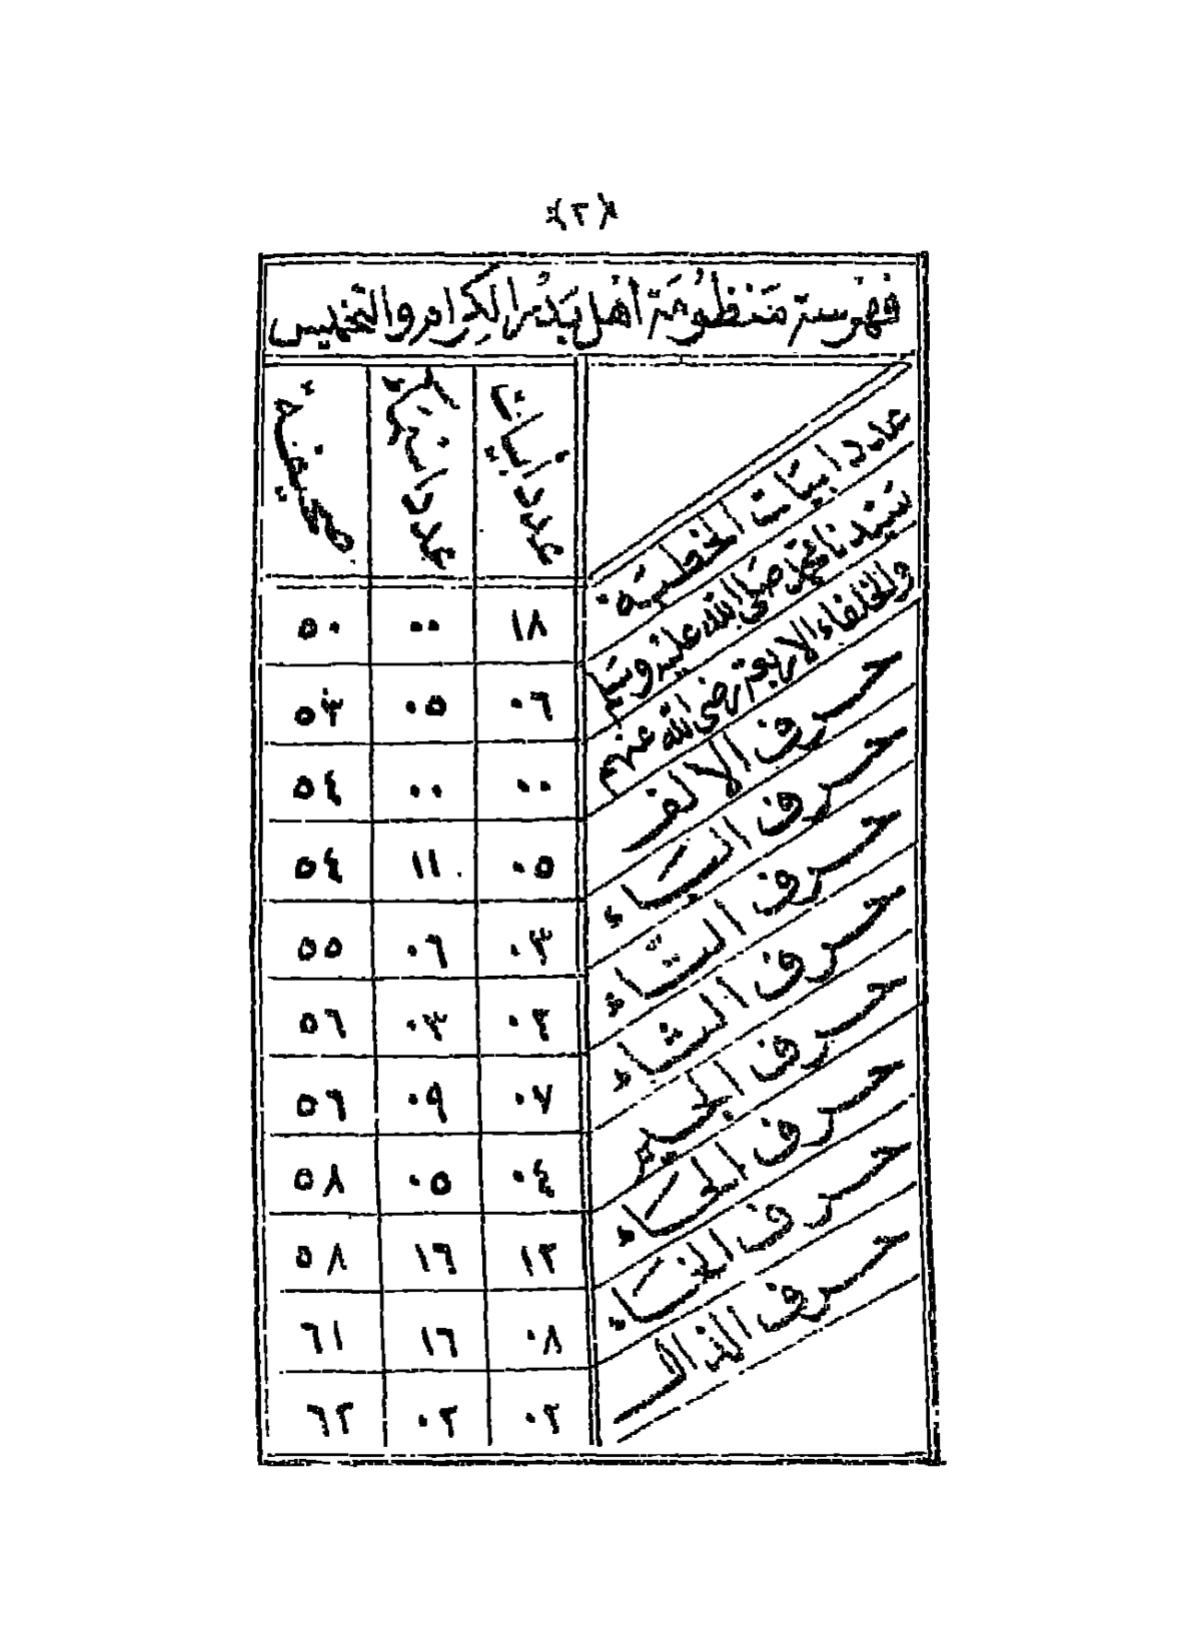 (٢)
فهرسة منظومة أهل بدر الكرام والتخميس
عدد أبيات عدد صحيفة
عدد ابيات الخطبة ١٨ ٠٠ ٥٠
سيدنا محمد صلى الله عليه وسلم ٠٦ ٠٥ ٥٣
والخلفاء الاربعة رضى الله عنهم ٠٠ ٠٠ ٥٤
حرف الالف ٠٥ ١١ ٥٤
حرف الباء ٠٣ ٠٦ ٥٥
حرف التاء ٠٢ ٠٣ ٥٦
حرف الثاء ٠٧ ٠٩ ٥٦
حرف الجيم ٠٤ ٠٥ ٥٨
حرف الحاء ١٢ ١٦ ٥٨
حرف الخاء ٠٨ ١٦ ٦١
حرف الذال ٠٢ ٠٢ ٦٢